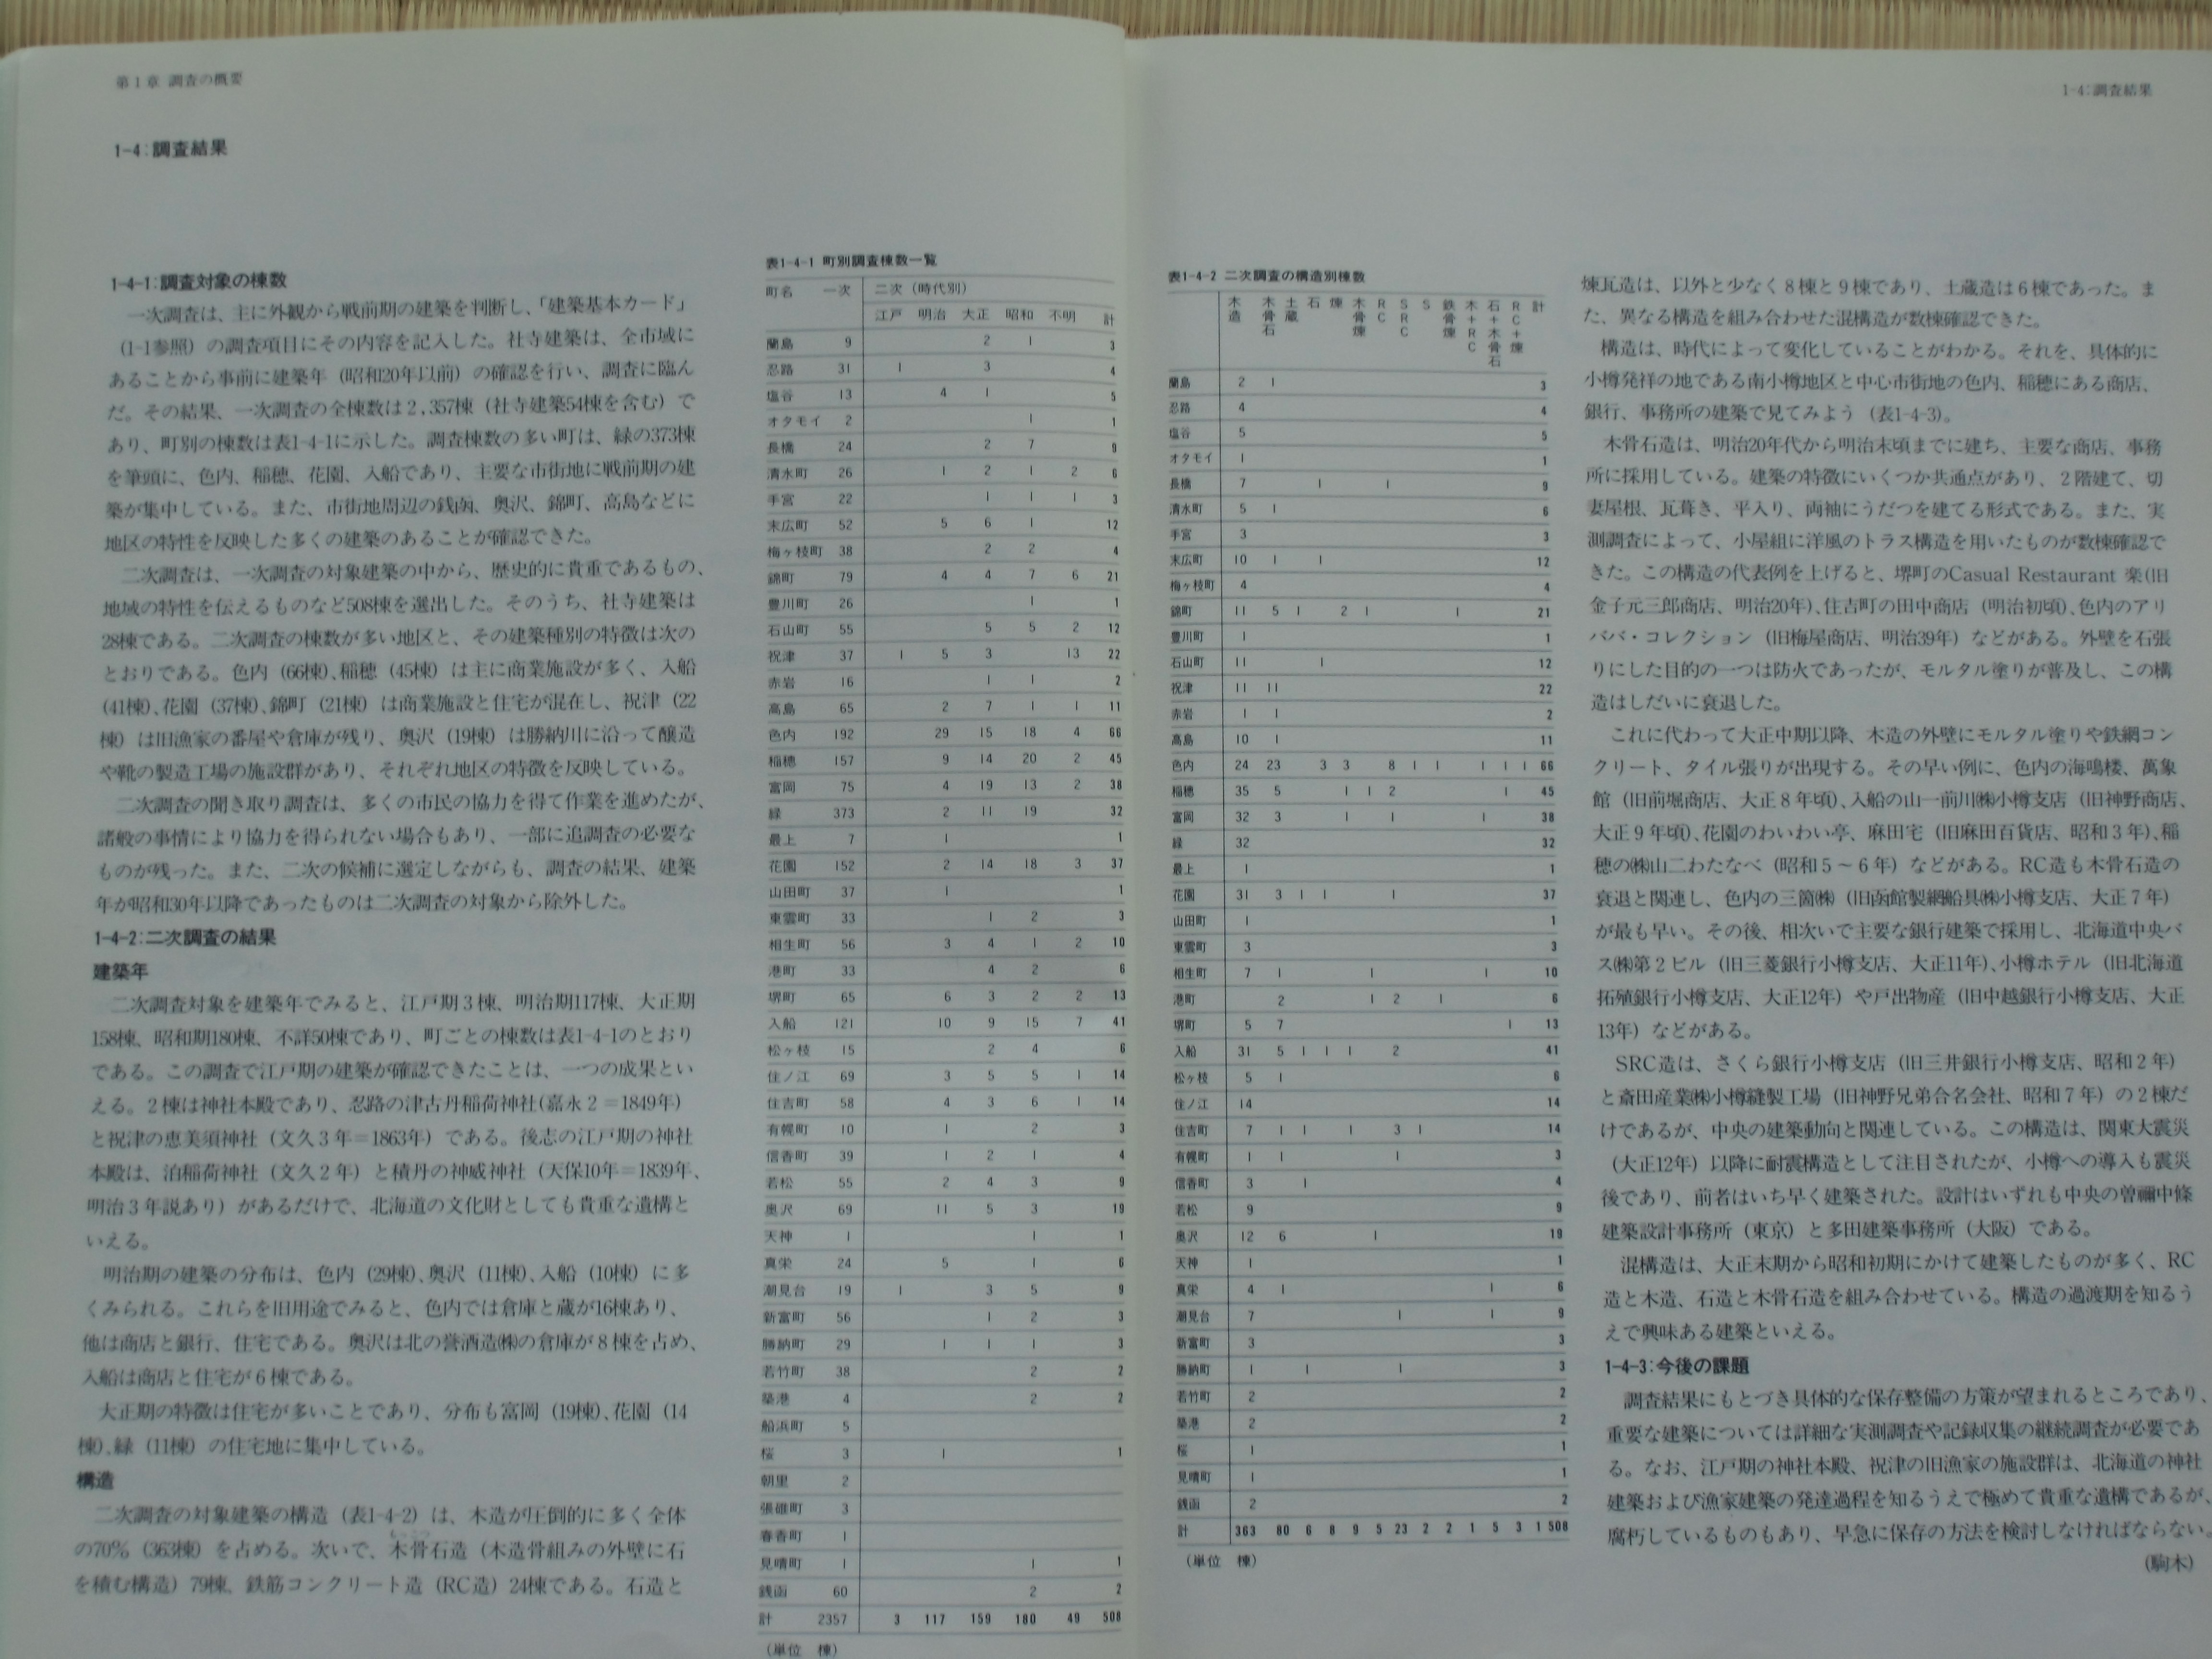 第1章 調査の概要
1-4:調査結果
1-4-1:調査対象の棟数
一次調査は、主に外観から戦前期の建築を判断し、「建築基本カード」
(1-1参照)の調査項目にその内容を記入した。社寺建築は、全市域に
あることから事前に建築年(昭和20年以前)の確認を行い、調査に臨ん
だ。その結果、一次調査の全棟数は2,357棟(社寺建築54棟を含む)で
あり、町別の棟数は表1-4-1に示した。調査棟数の多い町は、緑の373棟
を筆頭に、色内、稲穂、花園、入船であり、主要な市街地に戦前期の建
築が集中している。また、市街地周辺の銭函、奥沢、錦町、高島などに
地区の特性を反映した多くの建築のあることが確認できた。
二次調査は、一次調査の対象建築の中から、歴史的に貴重であるもの、
地域の特性を伝えるものなど508棟を選出した。そのうち、社寺建築は
28棟である。二次調査の棟数が多い地区と、その建築種別の特徴は次の
とおりである。色内(66棟)、稲穂(45棟)は主に商業施設が多く、入船
(41棟)、花園(37棟)、錦町(21棟)は商業施設と住宅が混在し、祝津(22
棟)は旧漁家の番屋や倉庫が残り、奥沢(19棟)は勝納川に沿って醸造
や靴の製造工場の施設群があり、それぞれ地区の特徴を反映している。
二次調査の聞き取り調査は、多くの市民の協力を得て作業を進めたが、
諸般の事情により協力を得られない場合もあり、一部に追調査の必要な
ものが残った。また、二次の候補に選定しながらも、調査の結果、建築
年が昭和30年以降であったものは二次調査の対象から除外した。
1-4-2:二次調査の結果
建築年
二次調査対象を建築年でみると、江戸期3棟、明治期117棟、大正期
158棟、昭和期180棟、不詳50棟であり、町ごとの棟数は表1-4-1のとおり
である。この調査で江戸期の建築が確認できたことは、一つの成果とい
える。2棟は神社本殿であり、忍路の津古丹稲荷神社(嘉永2=1849年)
と祝津の恵美須神社(文久3年=1863年)である。後志の江戸期の神社
本殿は、泊稲荷神社(文久2年)と積丹の神威神社(天保10年=1839年、
明治3年説あり)があるだけで、北海道の文化財としても貴重な遺構と
いえる。
明治期の建築の分布は、色内(29棟)、奥沢(11棟)、入船(10棟)に多
くみられる。これらを旧用途でみると、色内では倉庫と蔵が16棟あり、
他は商店と銀行、住宅である。奥沢は北の誉酒造㈱の倉庫が8棟を占め、
入船は商店と住宅が6棟である。
大正期の特徴は住宅が多いことであり、分布も富岡(19棟)、花園(14
棟)、緑(11棟)の住宅地に集中している。
構造
二次調査の対象建築の構造(表1-4-2)は、木造が圧倒的に多く全体
の70%(363棟)を占める。次いで、木骨石造(木造骨組みの外壁に石
を積む構造)79棟、鉄筋コンクリート造(RC造)24棟である。石造と
表1-4-1 町別調査棟数一覧
町名 一次 二次(時代別)
江戸 明治 大正 昭和 不明 計
蘭島 9 2 1 3
忍路 31 1 3 4
塩谷 13 4 1 5
オタモイ 2 1 1
長橋 24 2 7 9
清水町 26 1 2 1 2 6
手宮 22 1 1 1 3
末広町 52 5 6 1 12
梅ヶ枝町 38 2 2 4
錦町 79 4 4 7 6 21
豊川町 26 1 1
石山町 55 5 5 2 12
祝津 37 1 5 3 13 22
赤岩 16 1 1 2
高島 65 2 7 1 1 11
色内 192 29 15 18 4 66
稲穂 157 9 14 20 2 45
富岡 75 4 19 13 2 38
緑 373 2 11 19 32
最上 7 1 1
花園 152 2 14 18 3 37
山田町 37 1 1
東雲町 33 1 2 3
相生町 56 3 4 1 2 10
港町 33 4 2 6
堺町 65 6 3 2 2 13
入船 121 10 9 15 7 41
松ヶ枝 15 2 4 6
住ノ江 69 3 5 5 1 14
住吉町 58 4 3 6 1 14
有幌町 10 1 2 3
信香町 39 1 2 1 4
若松 55 2 4 3 9
奥沢 69 11 5 3 19
天神 1 1 1
真栄 24 5 1 6
潮見台 19 1 3 5 9
新富町 56 1 2 3
勝納町 29 1 1 1 3
若竹町 38 2 2
築港 4 2 2
船浜町 5
桜 3 1 1
朝里 2
張碓町 3
春香町 1
見晴町 1 1 1
銭函 60 2 2
計 2357 3 117 159 180 49 508
(単位 棟)
1-4:調査結果
表1-4-2 二次調査の構造別棟数
木造 木骨石 土蔵 石 煉 木骨煉 RC SRC S 鉄骨煉 木+RC 石+木骨石 RC+煉 計
蘭島 2 1 3
忍路 4 4
塩谷 5 5
オタモイ 1 1
長橋 7 1 1 9
清水町 5 1 6
手宮 3 3
末広町 10 1 1 12
梅ヶ枝町 4 4
錦町 11 5 1 2 1 1 21
豊川町 1 1
石山町 11 1 12
祝津 11 11 22
赤岩 1 1 2
高島 10 1 11
色内 24 23 3 3 8 1 1 1 1 1 66
稲穂 35 5 1 1 2 1 45
富岡 32 3 1 1 1 38
緑 32 32
最上 1 1
花園 31 3 1 1 1 37
山田町 1 1
東雲町 3 3
相生町 7 1 1 1 10
港町 2 1 2 1 6
堺町 5 7 1 13
入船 31 5 1 1 1 2 41
松ヶ枝 5 1 6
住ノ江 14 14
住吉町 7 1 1 1 3 1 14
有幌町 1 1 1 3
信香町 3 1 4
若松 9 9
奥沢 12 6 1 19
天神 1 1
真栄 4 1 1 6
潮見台 7 1 1 9
新富町 3 3
勝納町 1 1 1 3
若竹町 2 2
築港 2 2
桜 1 1
見晴町 1 1
銭函 2 2
計 363 80 6 8 9 5 23 2 2 1 5 3 1 508
(単位 棟)
煉瓦造は、以外と少なく8棟と9棟であり、土蔵造は6棟であった。ま
た、異なる構造を組み合わせた混構造が数棟確認できた。
構造は、時代によって変化していることがわかる。それを、具体的に
小樽発祥の地である南小樽地区と中心市街地の色内、稲穂にある商店、
銀行、事務所の建築で見てみよう(表1-4-3)。
木骨石造は、明治20年代から明治末頃までに建ち、主要な商店、事務
所に採用している。建築の特徴にいくつか共通点があり、2階建て、切
妻屋根、瓦葺き、平入り、両袖にうだつを建てる形式である。また、実
測調査によって、小屋組に洋風のトラス構造を用いたものが数棟確認で
きた。この構造の代表例を上げると、堺町のCasual Restaurant 楽(旧
金子元三郎商店、明治20年)、住吉町の田中商店(明治初頃)、色内のアリ
ババ・コレクション(旧梅屋商店、明治39年)などがある。外壁を石張
りにした目的の一つは防火であったが、モルタル塗りが普及し、この構
造はしだいに衰退した。
これに代わって大正中期以降、木造の外壁にモルタル塗りや鉄網コン
クリート、タイル張りが出現する。その早い例に、色内の海鳴楼、萬象
館(旧前堀商店、大正8年頃)、入船の山一前川㈱小樽支店(旧神野商店、
大正9年頃)、花園のわいわい亭、麻田宅(旧麻田百貨店、昭和3年)、稲
穂の㈱山二わたなべ(昭和5~6年)などがある。RC造も木骨石造の
衰退と関連し、色内の三箇㈱(旧函館製網船具㈱小樽支店、大正7年)
が最も早い。その後、相次いで主要な銀行建築で採用し、北海道中央バ
ス㈱第2ビル(旧三菱銀行小樽支店、大正11年)、小樽ホテル(旧北海道
拓殖銀行小樽支店、大正12年)や戸出物産(旧中越銀行小樽支店、大正
13年)などがある。
SRC造は、さくら銀行小樽支店(旧三井銀行小樽支店、昭和2年)
と斎田産業㈱小樽縫製工場(旧神野兄弟合名会社、昭和7年)の2棟だ
けであるが、中央の建築動向と関連している。この構造は、関東大震災
(大正12年)以降に耐震構造として注目されたが、小樽への導入も震災
後であり、前者はいち早く建築された。設計はいずれも中央の曽禰中條
建築設計事務所(東京)と多田建築事務所(大阪)である。
混構造は、大正末期から昭和初期にかけて建築したものが多く、RC
造と木造、石造と木骨石造を組み合わせている。構造の過渡期を知るう
えで興味ある建築といえる。
1-4-3:今後の課題
調査結果にもとづき具体的な保存整備の方策が望まれるところであり、
重要な建築については詳細な実測調査や記録収集の継続調査が必要であ
る。なお、江戸期の神社本殿、祝津の旧漁家の施設群は、北海道の神社
建築および漁家建築の発達過程を知るうえで極めて貴重な遺構であるが、
腐朽しているものもあり、早急に保存の方法を検討しなければならない。
(駒木)